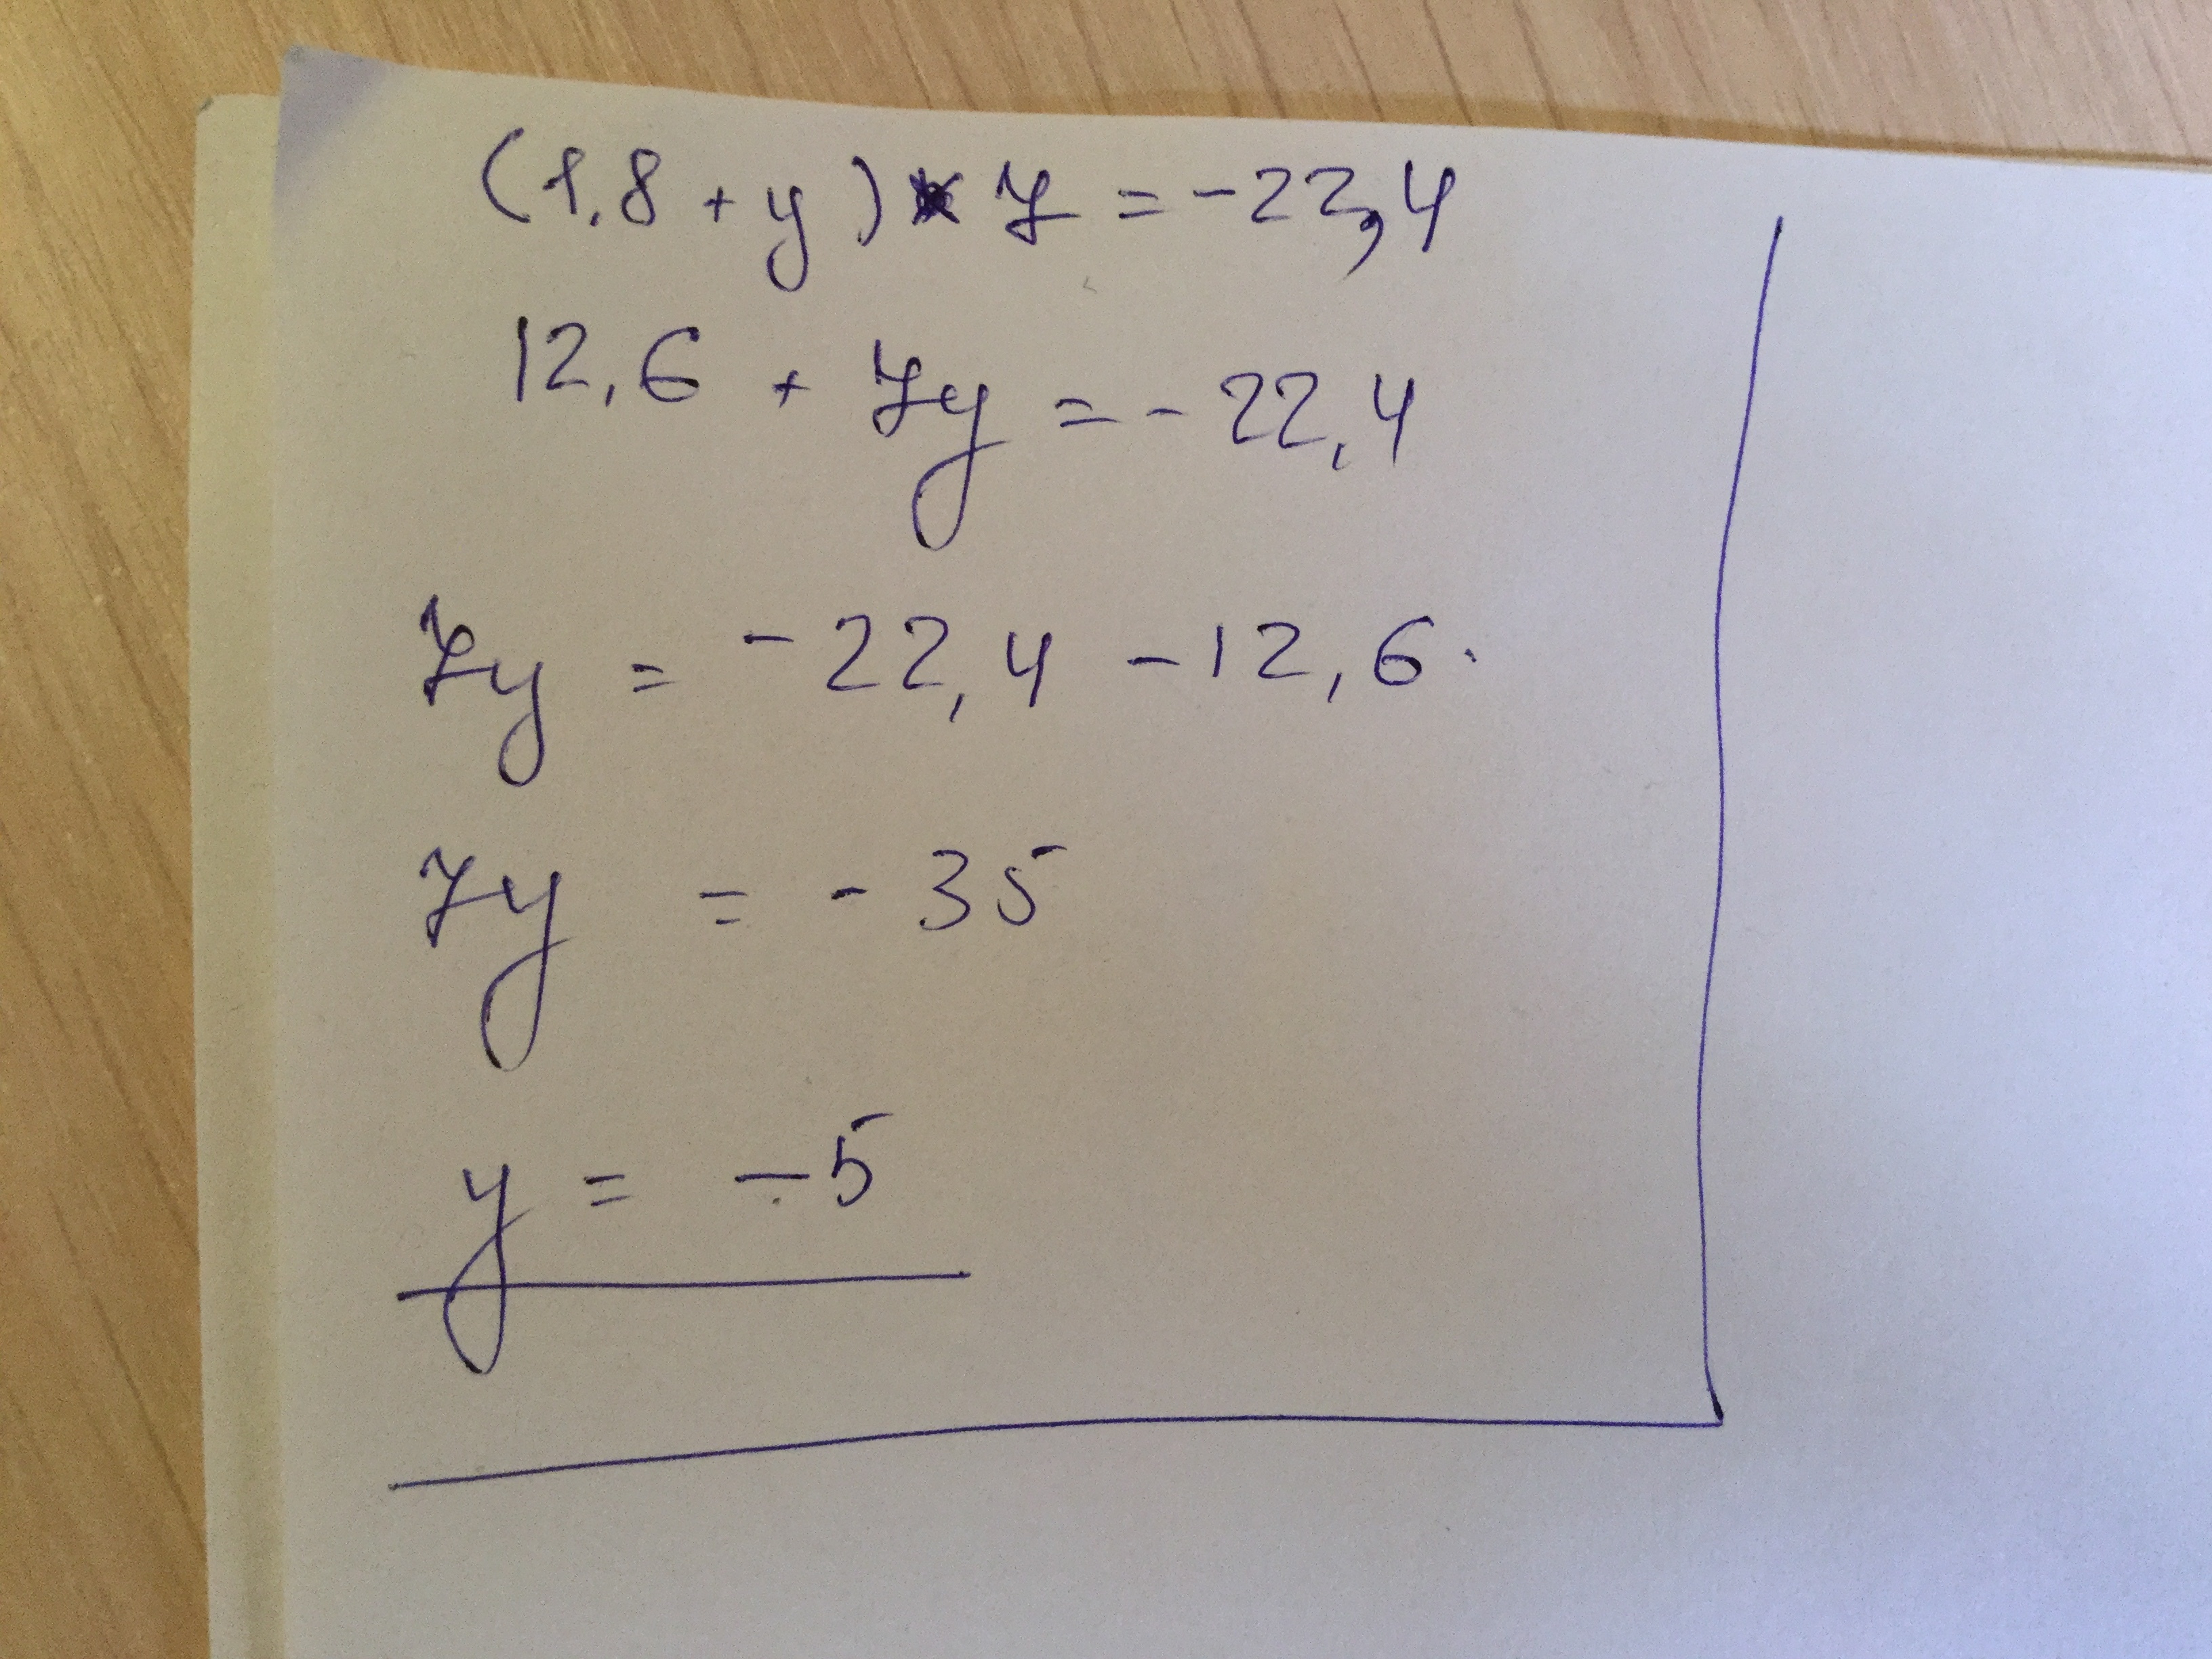 (1,8 + y) * 7 = -22,4
12,6 + 7y = -22,4
7y = -22,4 -12,6.
7y = -35
y = -5